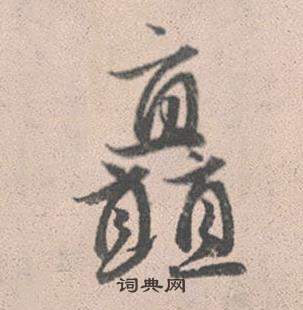 矗
词典网